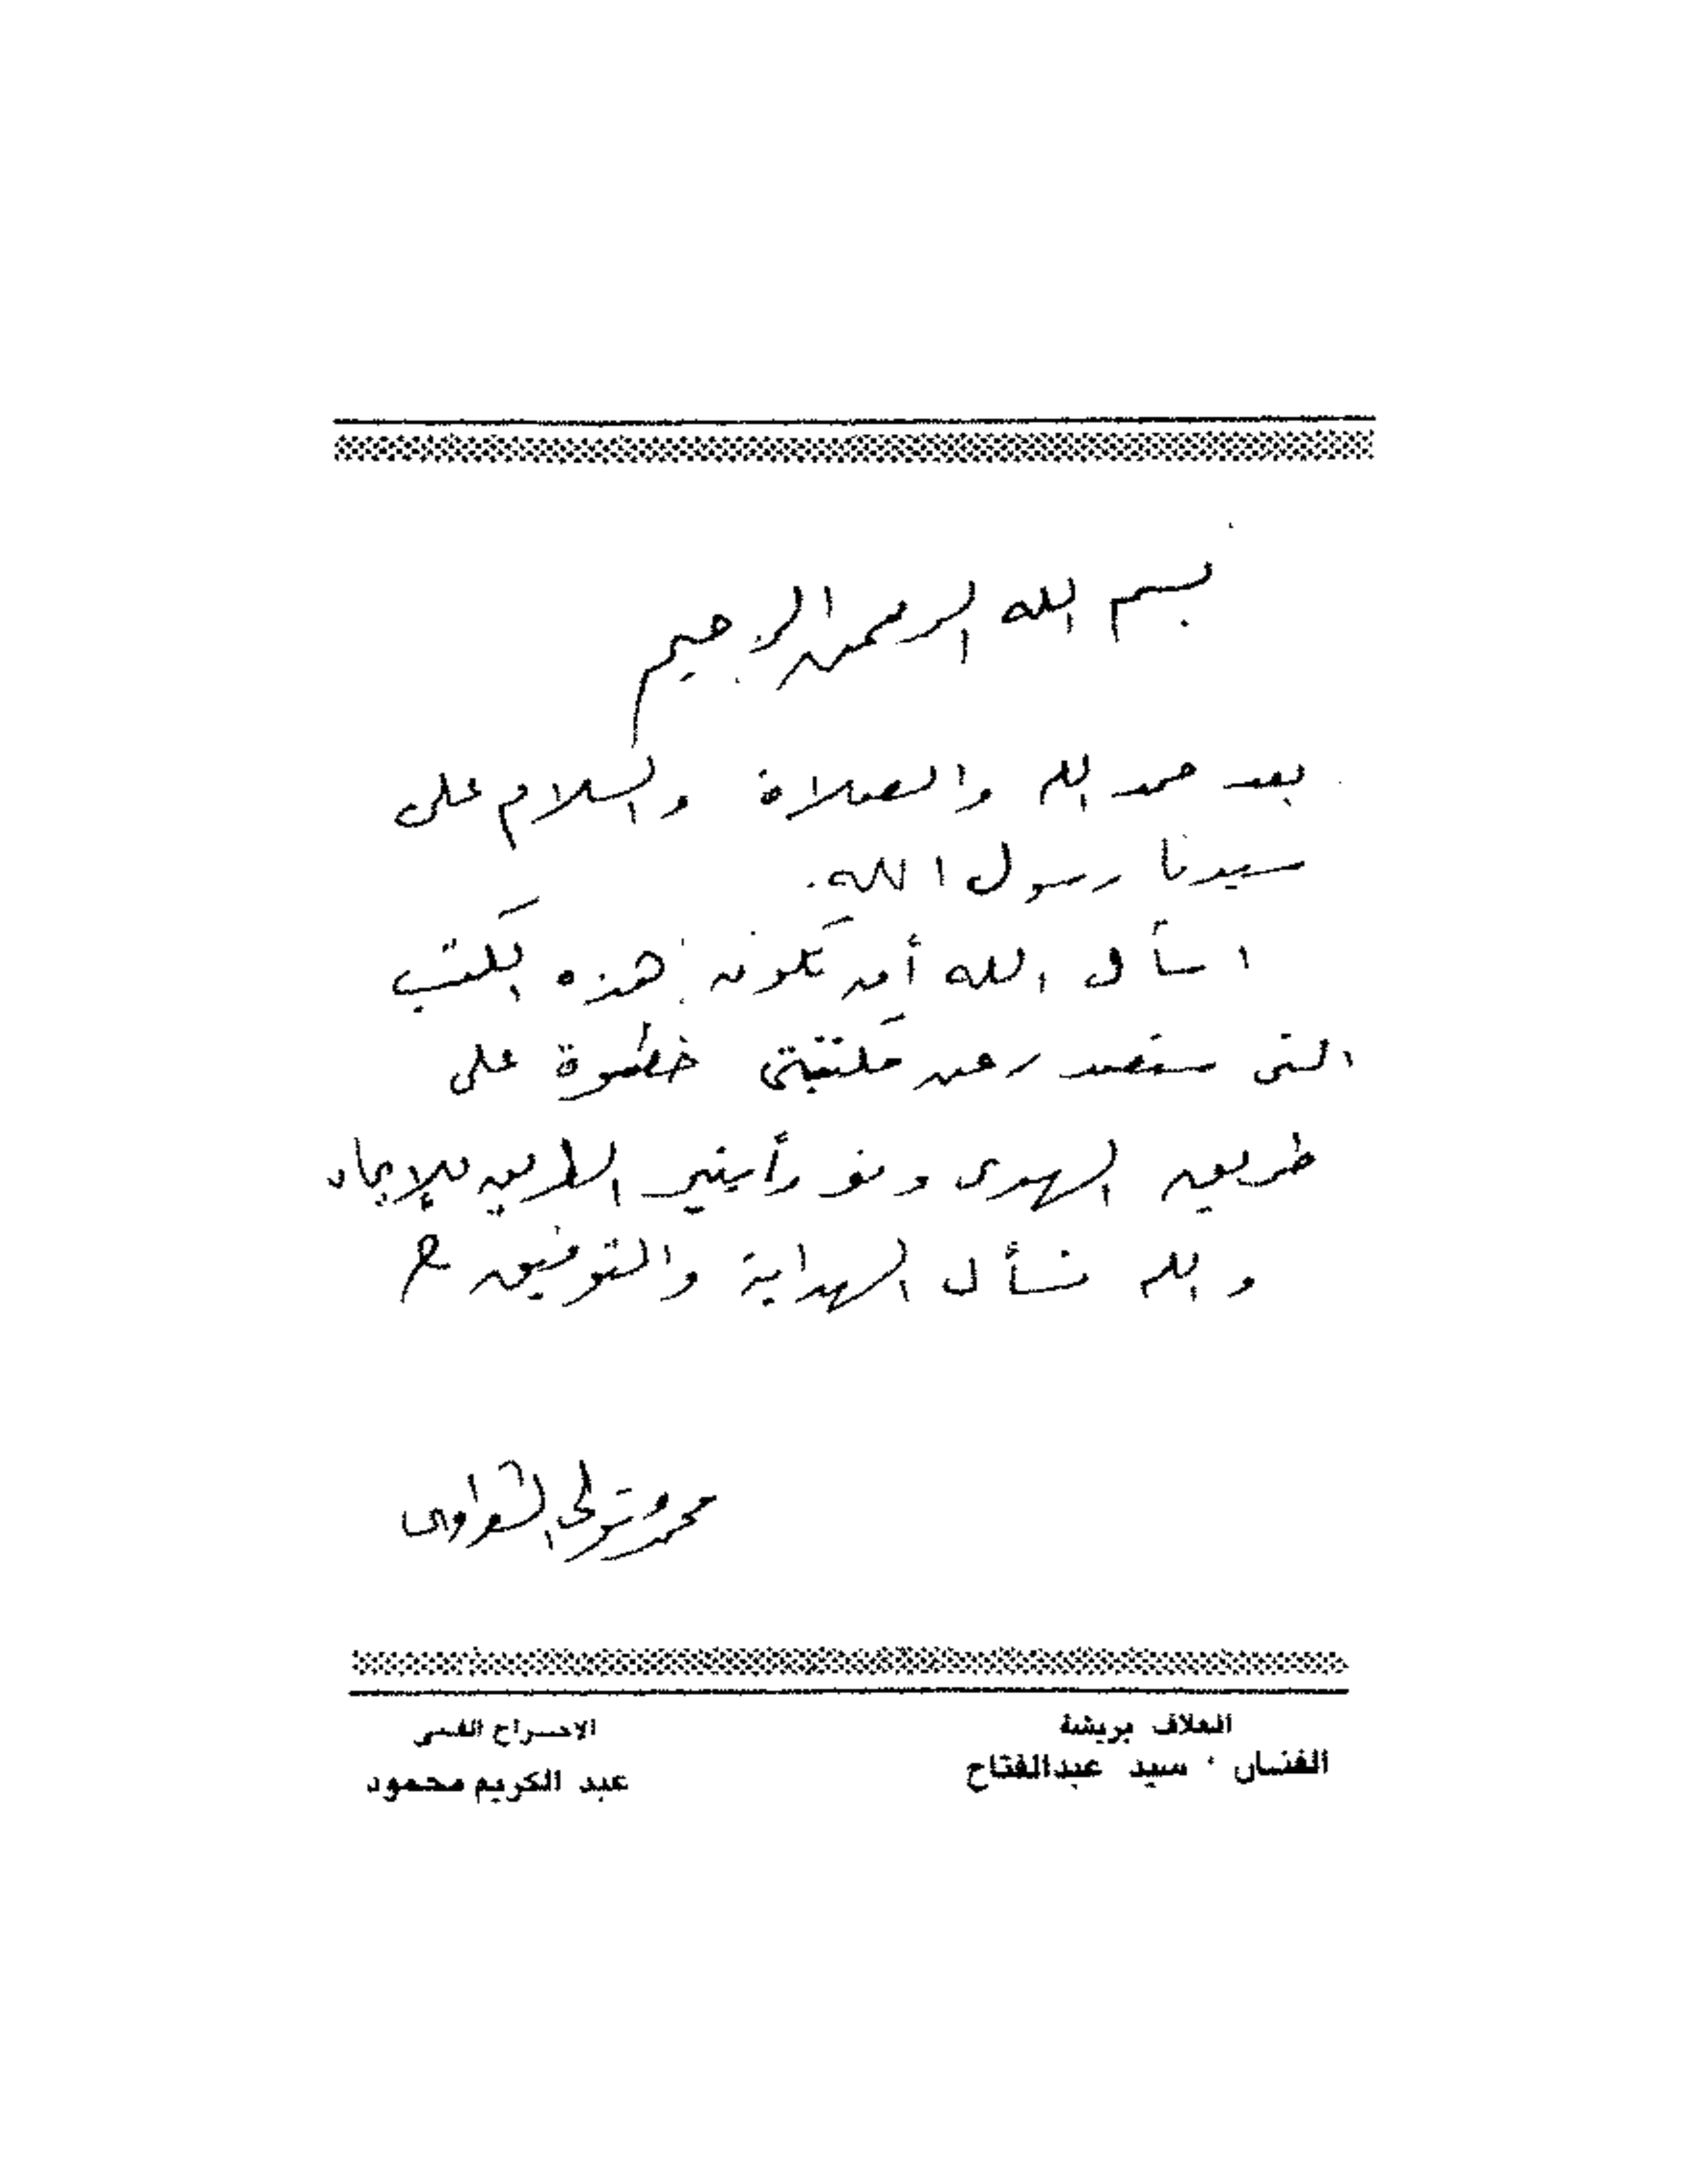 بسم الله الرحمن الرحيم
بعد حمد الله والصلاة والسلام على
سيدنا رسول الله.
اسأل الله أن تكون هذه الكتب
التى ستصدر عن مكتبتى خطوة على
طريق الهدى
والله نسأل الهداية والتوفيق
محمد متولى الشعراوى
الغلاف بريشة
الفنان سيد عبدالفتاح
الاخراج الفنى
عبد الكريم محمود